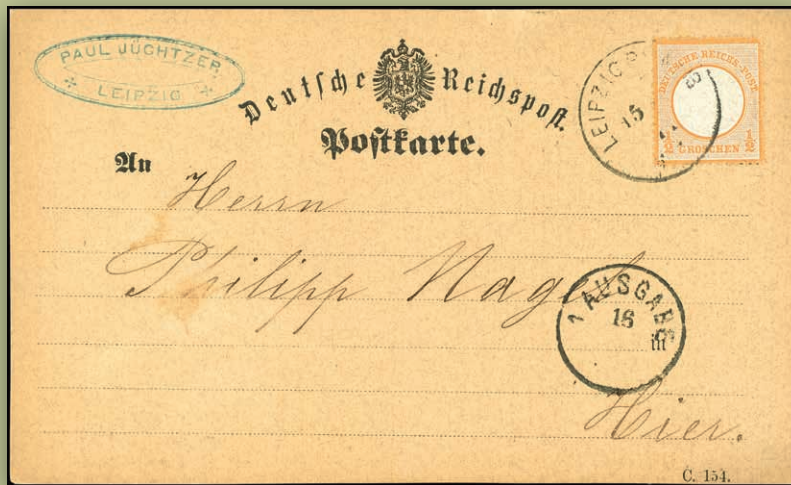 PAUL JÜCHTZER.
LEIPZIG
Deutsche Reichspost.
Postkarte.
LEIPZIG
15
DEUTSCHE REICHS-POST
1/2 GROSCHEN 1/2
An
Herrn
Philipp Nagel
1 AUSGABE
16
in
Hier.
C. 154.